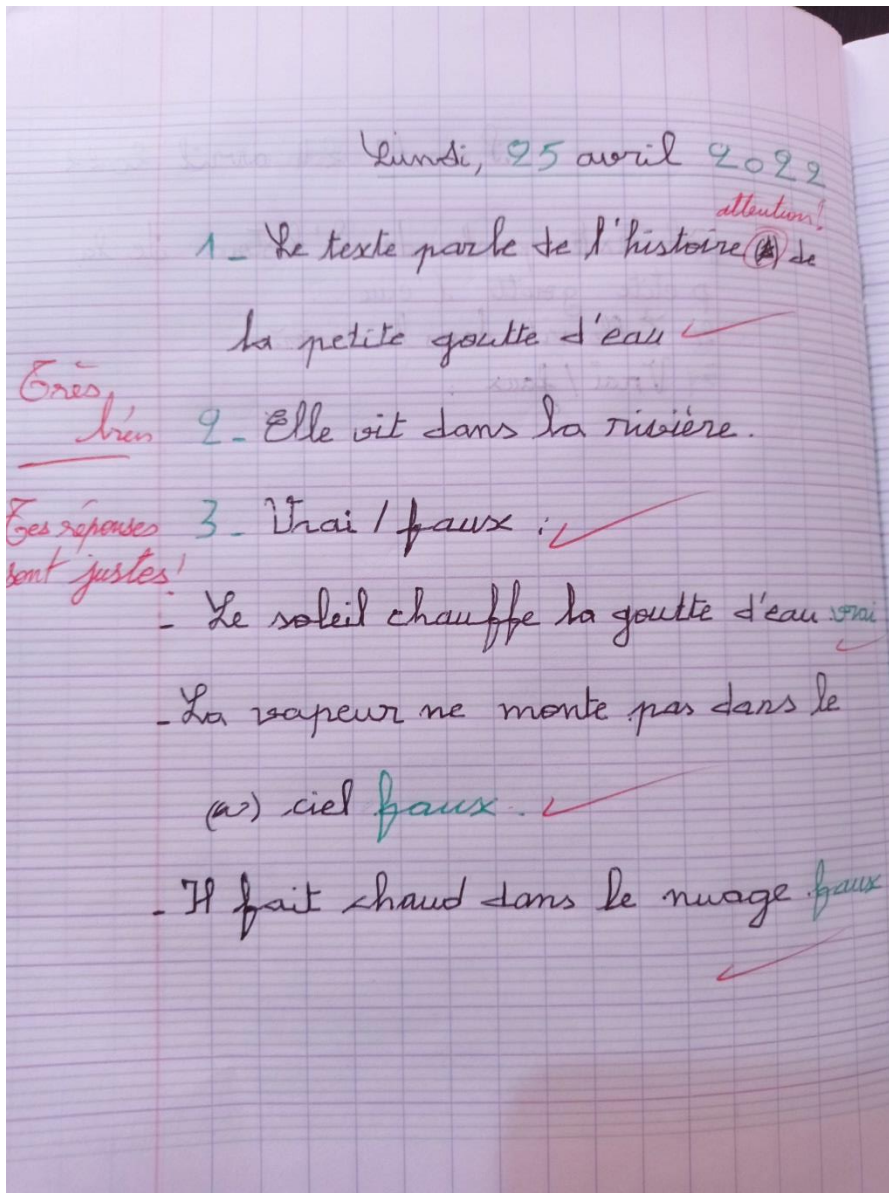 Lundi, 25 avril 2022
attention!
1- Le texte parle de l'histoire de
la petite goutte d'eau
Très bien
2- Elle vit dans la rivière.
3- Vrai / faux :
Tes réponses
sont justes!
- Le soleil chauffe la goutte d'eau vrai
- La vapeur ne monte pas dans le
(a) ciel faux.
- Il fait chaud dans le nuage faux